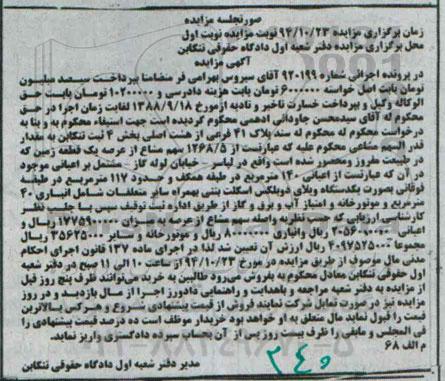 صورتجلسه مزایده
زمان برگزاری مزایده ۹۴/۱۰/۲۳ نوبت مزایده نوبت اول
محل برگزاری مزایده دفتر شعبه اول دادگاه حقوقی تنکابن
آگهی مزایده
در پرونده اجرائی شماره ۹۲۰۱۹۹ آقای سیروس بهرامی فر متضامنا بپرداخت سیصد میلیون
تومان بابت اصل خواسته ۶۰۰۰۰۰۰ تومان بابت هزینه دادرسی و ۱۰۲۰۰۰۰۰ تومان بابت حق
الوکاله وکیل و پرداخت خسارت تاخیر و تادیه از مورخ ۱۳۸۸/۹/۱۸ لغایت زمان اجرا در حق
محکوم له آقای سیدمحسن جاودانی ادهمی محکوم گردیده است جهت استیفاء محکوم به و بنا به
درخواست محکوم له محکوم له سند پلاک ۴۱ فرعی از هشت اصلی بخش ۴ ثبت تنکابن به مقدار
قدر السهم مشاعی محکوم علیه که عبارتست از ۱۲۶۸/۵ سهم مشاع از عرصه یک قطعه زمین که
در طبیعت مفروز ومحصور شده است واقع در لپاسر خیابان لوله گاز مشتمل بر اعیانی موجود
در آن که عبارتست از اعیانی ۱۴۰ مترمربع در طبقه همکف و حدود ۱۱۷ مترمربع در طبقه
فوقانی بصورت یکدستگاه ویلای دوبلکس اسکلت بتنی بهمراه سایر متعلقات شامل انباری ۴۰
مترمربع و موتورخانه و امتیاز آب و برق و گاز از طریق اداره ثبت توقیف سپس با جلب نظر
کارشناسی ارزیابی که حسب نظریه واصله سهم مشاع از عرصه به میزان ۱۷۷۵۹۰۰۰۰۰ ریال و
اعیانی ۲۰۵۶۰۰۰۰۰۰ ریال وانباری ۸۰۰۰۰۰۰۰ ریال و موتورخانه و سایر ۳۵۶۲۵۰۰۰۰ ریال
مجموعا ۴۰۹۷۵۲۵۰۰۰ ریال ارزش آن تعیین شد لذا در اجرای ماده ۱۳۷ قانون اجرای احکام
مدنی مال موصوف از طریق مزایده در مورخ ۹۴/۱۰/۲۳ از ساعت ۱۰ الی ۱۱ صبح در دفتر شعبه
اول حقوقی تنکابن معادل محکوم به بفروش می‌رود طالبین به خرید می‌توانند ظرف پنج روز قبل
از مزایده به دفتر شعبه مراجعه و باهدایت و راهنمایی دادورز اجرا از مال بازدید و در روز
مزایده نیز در صورت تمایل شرکت نمایند فروش از قیمت پیشنهادی شروع و هرکس بالاترین
قیمت را قبول نماید مال متعلق به او خواهد بود خریدار موظف است ده درصد قیمت پیشنهادی را
فی المجلس و مابقی را ظرف بیست روز پس از آن بحساب سپرده دادگستری واریز نماید.
م الف ۶۸
مدیر دفتر شعبه اول دادگاه حقوقی تنکابن